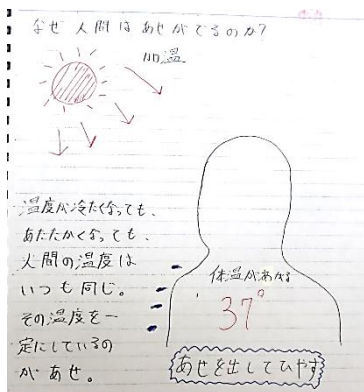 なぜ人間はあせがでるのか?
加温
温度が冷たくなっても、
あたたかくなっても、
人間の温度は
いつも同じ。
その温度を一
定にしているの
があせ。
体温があがる
37°
あせを出してひやす